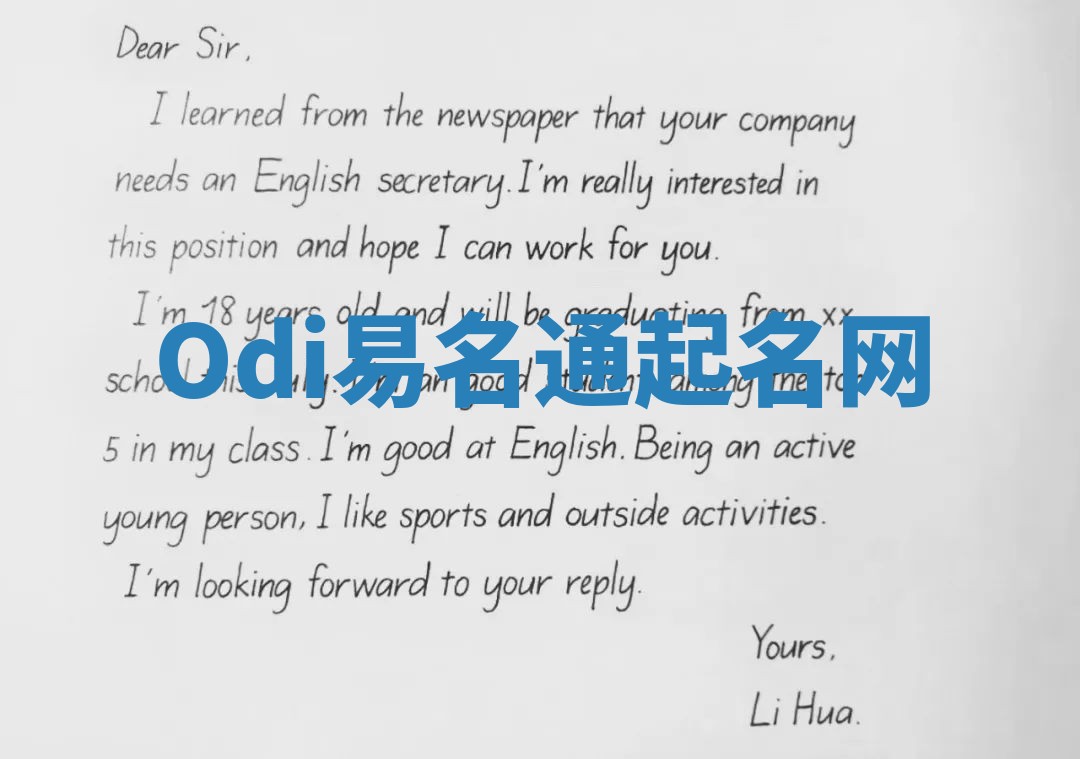 Dear Sir,
I learned from the newspaper that your company
needs an English secretary. I'm really interested in
this position and hope I can work for you.
I'm 18 years old and will be graduating from xx
Odi易名通起名网
school this July. I am an good student among the top
5 in my class. I'm good at English. Being an active
young person, I like sports and outside activities.
I'm looking forward to your reply.
Yours,
Li Hua.